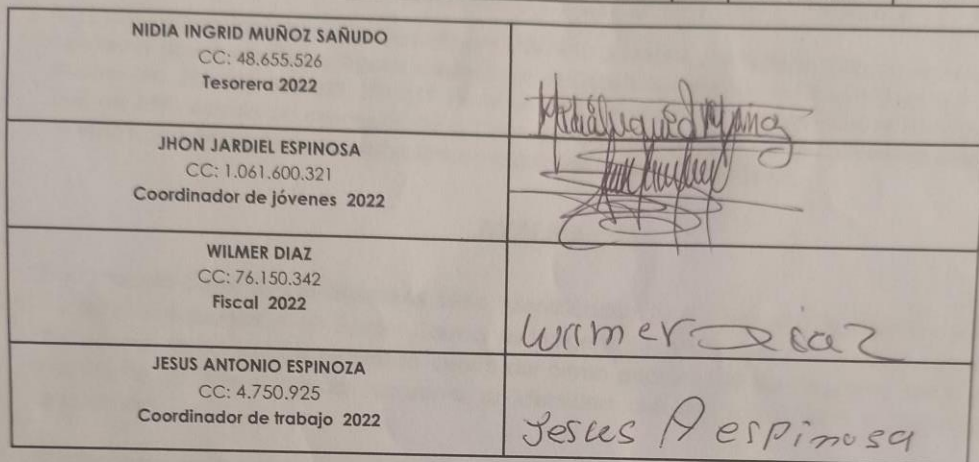 NIDIA INGRID MUÑOZ SAÑUDO
CC: 48.655.526
Tesorera 2022
JHON JARDIEL ESPINOSA
CC: 1.061.600.321
Coordinador de jóvenes 2022
WILMER DIAZ
CC: 76.150.342
Fiscal 2022
Wilmer Diaz
JESUS ANTONIO ESPINOZA
CC: 4.750.925
Coordinador de trabajo 2022
Jesus A espinosa